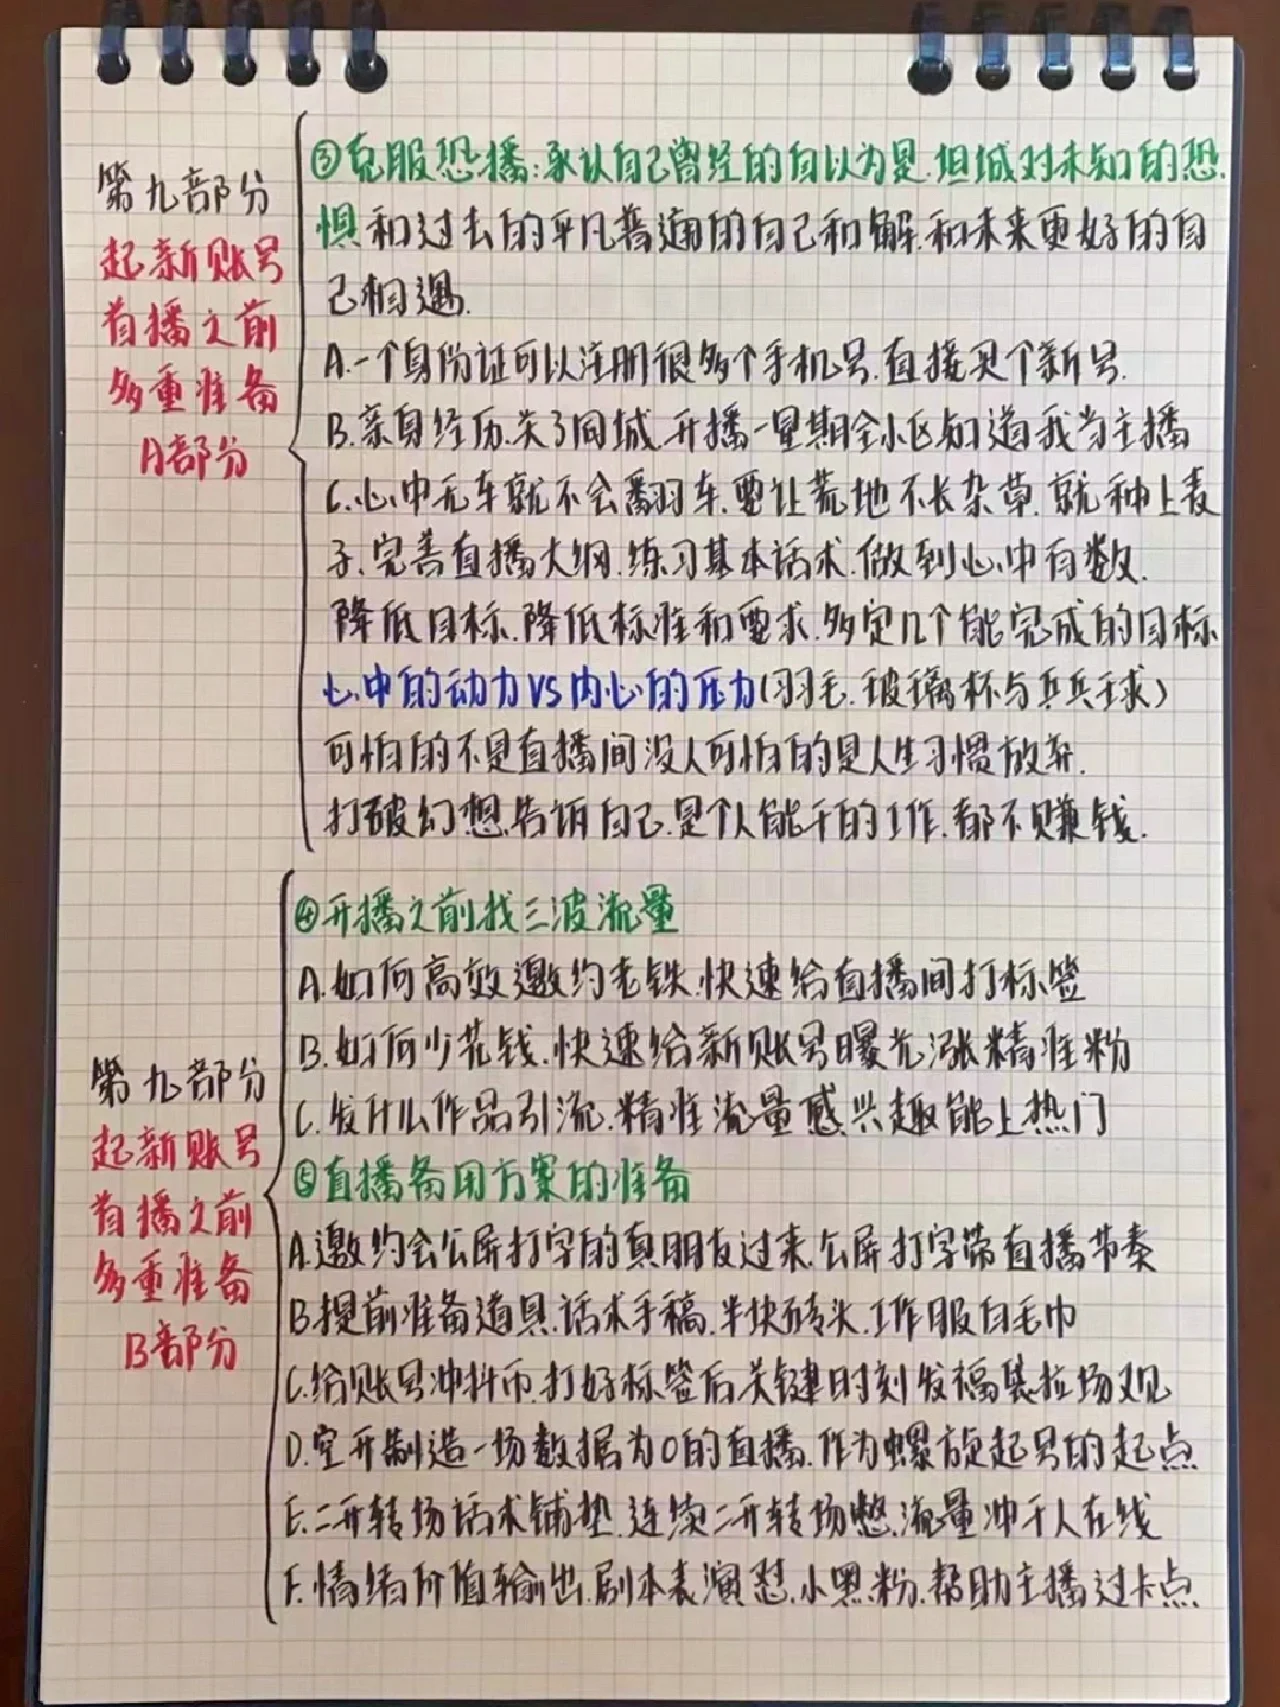 第九部分
起新账号
首播之前
多重准备
A部分
③克服恐播:承认自己曾经的自以为是.坦诚对未知的恐.
惧和过去的平凡普通的自己和解.和未来更好的自
己相遇.
A.一个身份证可以注册很多个手机号.直接买个新号.
B.亲身经历.关了同城.开播一星期全小区知道我当主播
C.心中无车就不会翻车.要让荒地不长杂草.就种上麦
子.完善直播大纲.练习基本话术.做到心中有数.
降低目标.降低标准和要求.多定几个能完成的目标
心中的动力VS内心的压力(羽毛.玻璃杯与乒乓球)
可怕的不是直播间没人可怕的是人生习惯放弃.
打破幻想.告诉自己.是个人能干的工作.都不赚钱.
第九部分
起新账号
首播之前
多重准备
B部分
④开播之前找三波流量
A.如何高效邀约老铁.快速给直播间打标签
B.如何少花钱.快速给新账号曝光涨精准粉
C.发什么作品引流.精准流量感兴趣能上热门
⑤直播备用方案的准备
A.邀约会公屏打字的真朋友过来.公屏打字带直播节奏
B.提前准备道具.话术手稿.半块砖头.工作服白毛巾
C.给账号冲抖币.打好标签后关键时刻发福袋拉场观
D.空开制造一场数据为0的直播.作为螺旋起号的起点
E.二开转场话术铺垫.连续二开转场憋流量冲千人在线
F.情绪价值输出.剧本表演怼小黑粉.帮助主播过卡点